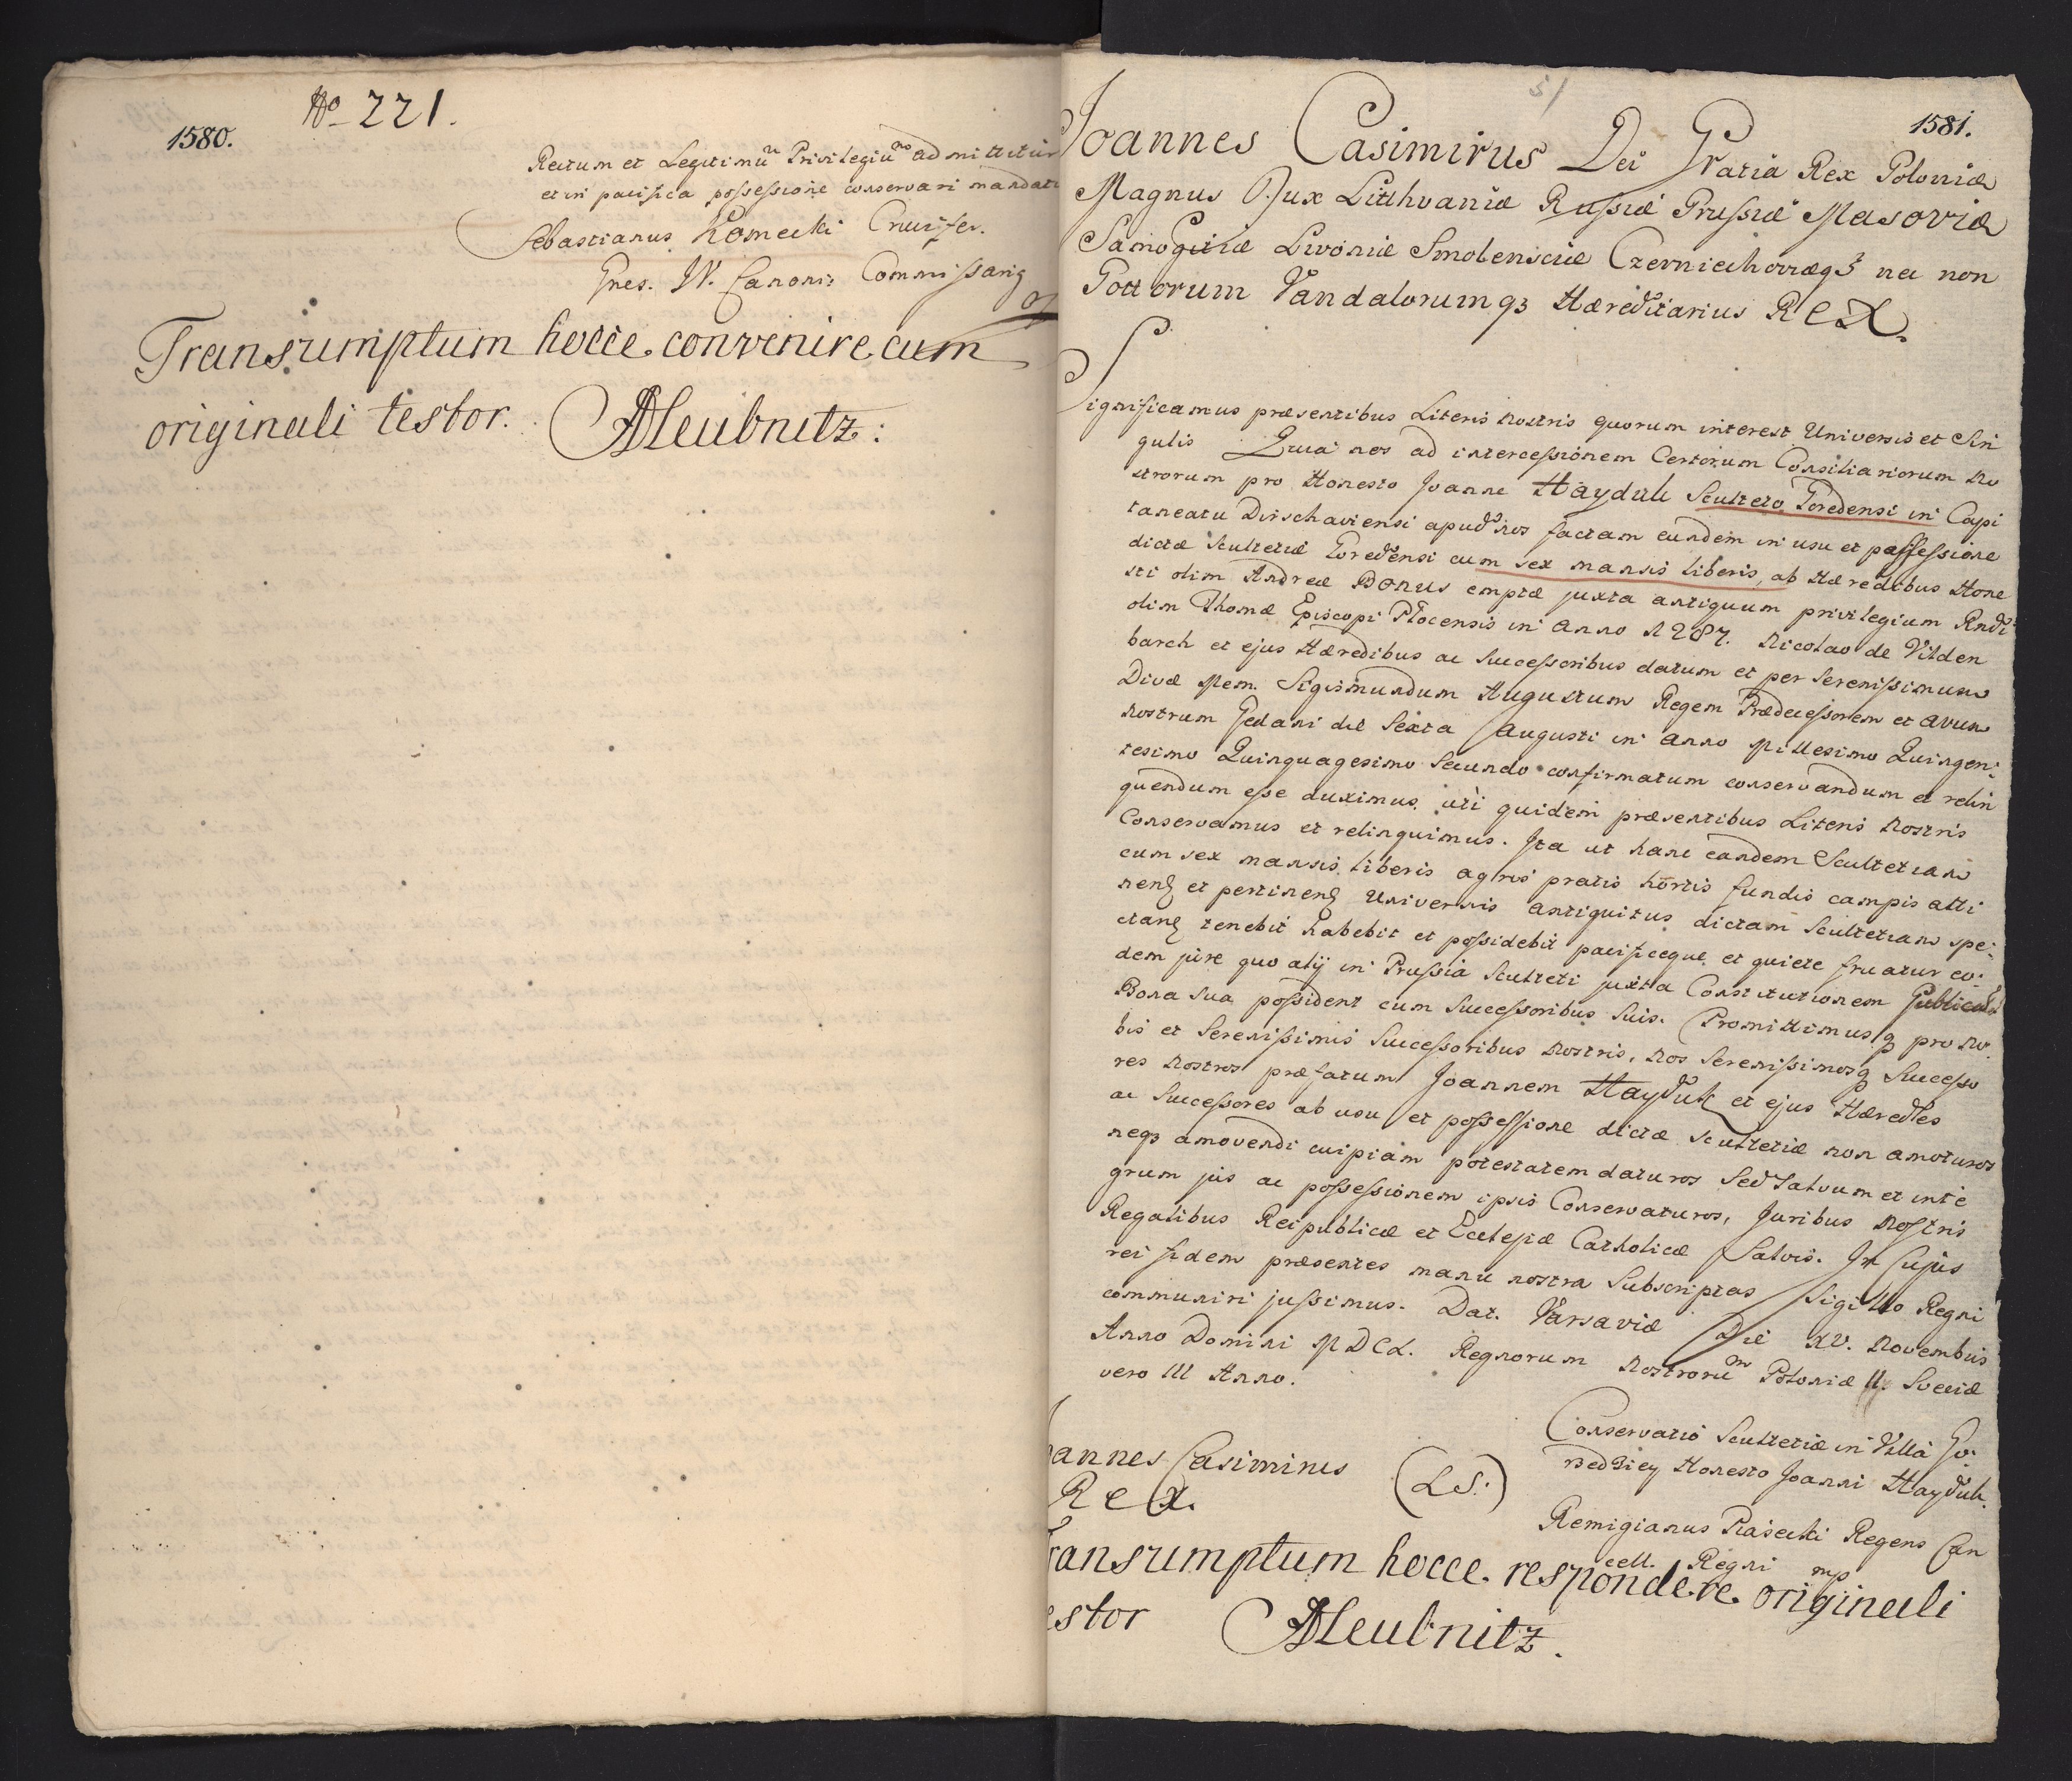 1580.
No 221.
Rectum et Legitimu Privilegiu admittitur
et in pacifica possessione conservari mandatu
Sebastianus Komecki Crucifer.
Gnes. W. Canonis Commissariq
Transsumptum hocce convenire cum
originali testor. Aleubnitz:
51
1581.
Joannes Casimirus Dei Gratia Rex Poloniæ
Magnus Dux Litthvaniæ Russiæ Prussiæ Masoviæ
Samogitiæ Livoniæ Smolensciæ Czerniechoviæqꝫ nec non
Gottorum Vandalorumqꝫ Hæreditarius Rex.
Significamus præsentibus Literis nostris quorum interest Universis et Sin
gulis Quia nos ad intercessionem Certorum Consiliariorum no
strorum pro Honesto Joanne Hayduk Sculteto Goredensi in Capi
taneatu Dirschaviensi apud nos factam eundem in usu et possessione
dictæ Scultetiæ Goredensi cum sex mansis liberis, ab Hæredibus Hone
sti olim Andreæ Bonus emptæ juxta antiquum privilegium Rndi
olim Thomæ Episcopi Plocensis in Anno 1287. Nicolao de Vilden
barch et ejus Hæredibus ac Successoribus datum et per Serenissimum
Divæ Mem. Sigismundum Augustum Regem Prædecessorem et avun
nostrum Gedani die Sexta Augusti in Anno Millesimo Quingen-
tesimo Quinquagesimo Secundo confirmatum conservandum et relin
quendum esse duximus. uti quidem præsentibus Literis nostris
Conservamus et relinquimus. Ita ut hanc eandem Scultetiam
cum sex mansis liberis agris pratis hortis fundis campis atti
nen. et pertinen. Universis antiquitus dictam Scultetiam spe-
ctan. tenebit habebit et possidebit pacificeque et quiete fruatur eo-
dem jure quo alij in Prussia Sculteti juxta Constitutionem Publicas
Bona sua possident cum Successoribus Suis. Promittimusq pro no-
bis et Serenissimis Successoribus nostris, nos Serenissimosq Successo
res nostros præfatum Joannem Hayduk et ejus Hæredes
ac Successores ab usu et possessione dictæ Scultetiæ non amoturos
neqꝫ amovendi cuipiam potestatem daturos Sed Salvum et inte
grum jus ac possessionem ipsis Conservaturos, Juribus nostris
Regalibus Reipublicæ et Ecclesiæ Catholicæ Salvis. In Cujus
rei fidem præsentes manu nostra Subscriptas Sigillo Regni
communiri jussimus. Dat. Varsaviæ Die XV. Novembris
Anno Domini MDCL. Regnorum nostrorum Poloniæ II. Sveciæ
vero III Anno.
Conservatio Scultetiæ in Villa Go-
redziey Honesto Joanni Hayduk.
oannes Casimirus
Rex.
(LS.)
Remigianus Piasecki Regens Can
cell. Regni mp
ransumptum hocce respondere originali
estor Aleubnitz.